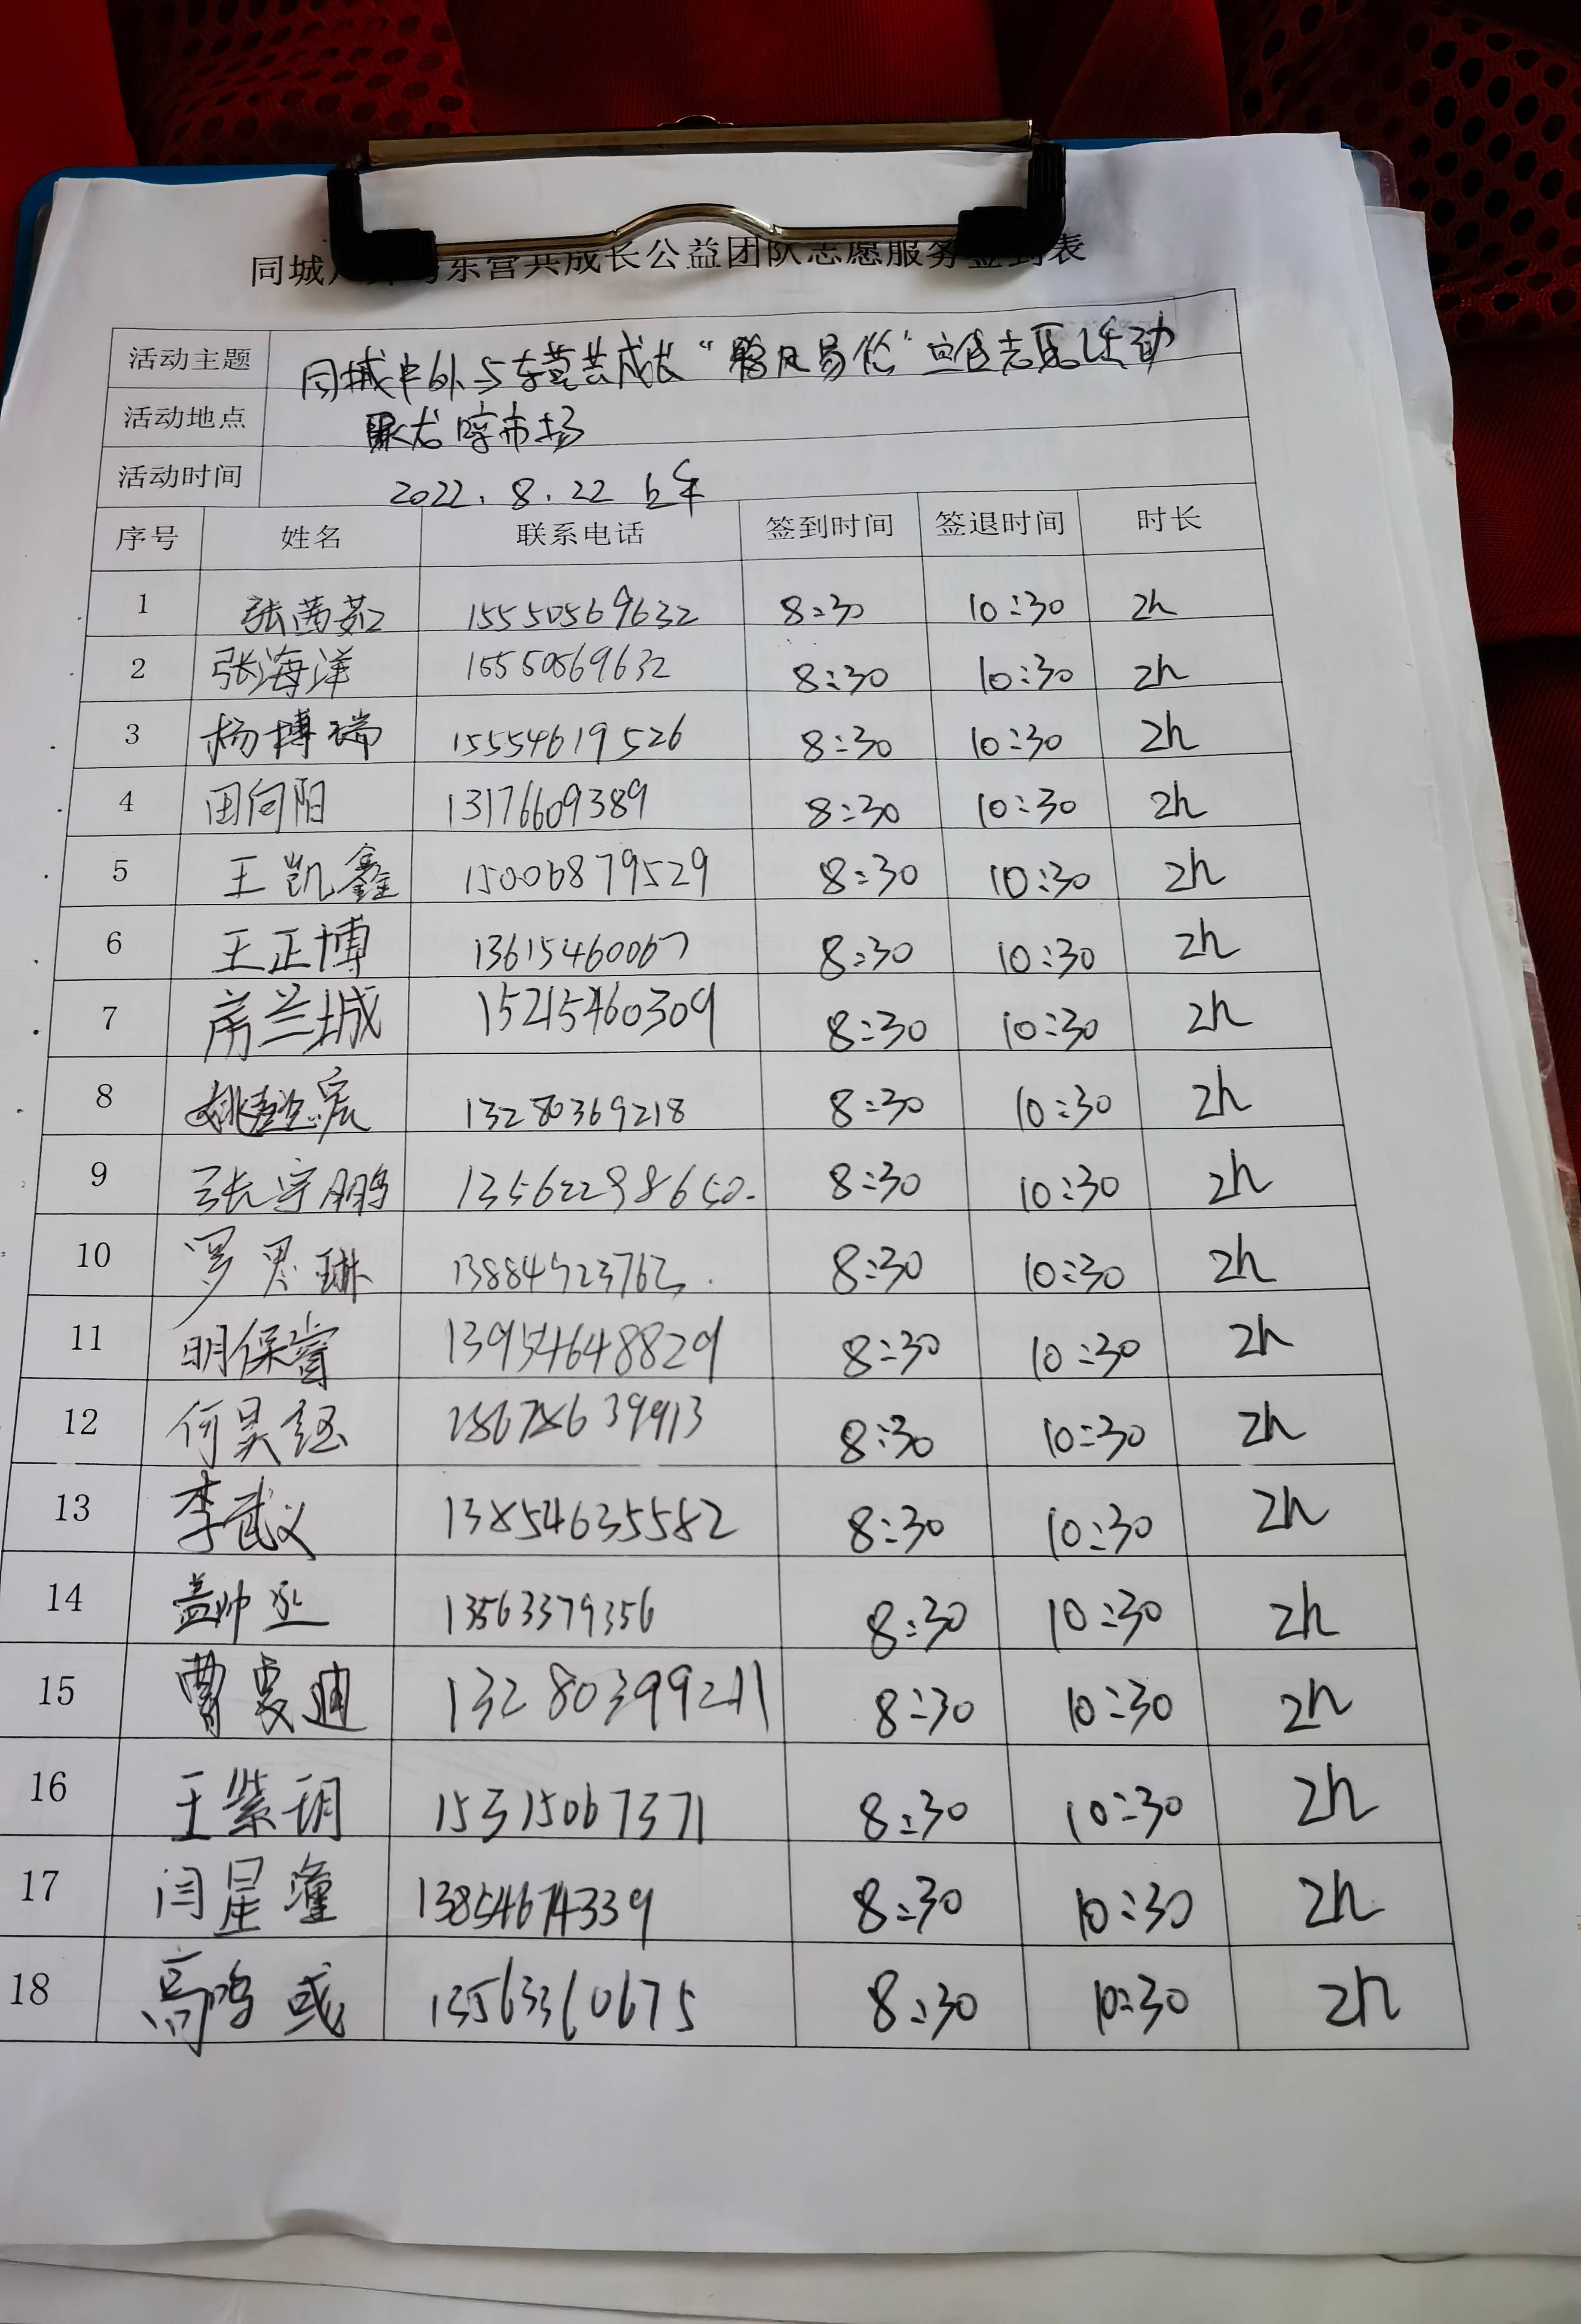 同城户外与东营共成长公益团队志愿服务签到表
活动主题 同城户外与东营共成长“移风易俗”宣传志愿活动
活动地点 市场
活动时间 2022.8.22 上午
序号 姓名 联系电话 签到时间 签退时间 时长
1 张茜茹 15550569632 8:30 10:30 2h
2 张海洋 15550569632 8:30 10:30 2h
3 杨博瑞 15554619526 8:30 10:30 2h
4 田向阳 13176609389 8:30 10:30 2h
5 王凯鑫 15006879529 8:30 10:30 2h
6 王正博 13615460067 8:30 10:30 2h
7 兰城 15215460309 8:30 10:30 2h
8 姚懿宸 13280369218 8:30 10:30 2h
9 张宇鹏 13562298650. 8:30 10:30 2h
10 罗思琳 13884923762. 8:30 10:30 2h
11 明保睿 13954648829 8:30 10:30 2h
12 何昊 8:30 10:30 2h
13 李武义 13854635582 8:30 10:30 2h
14 盖帅丞 13563379356 8:30 10:30 2h
15 曹曼迪 13280399211 8:30 10:30 2h
16 王紫玥 15315067371 8:30 10:30 2h
17 闫星潼 13854674339 8:30 10:30 2h
18 高鸣彧 13563360675 8:30 10:30 2h